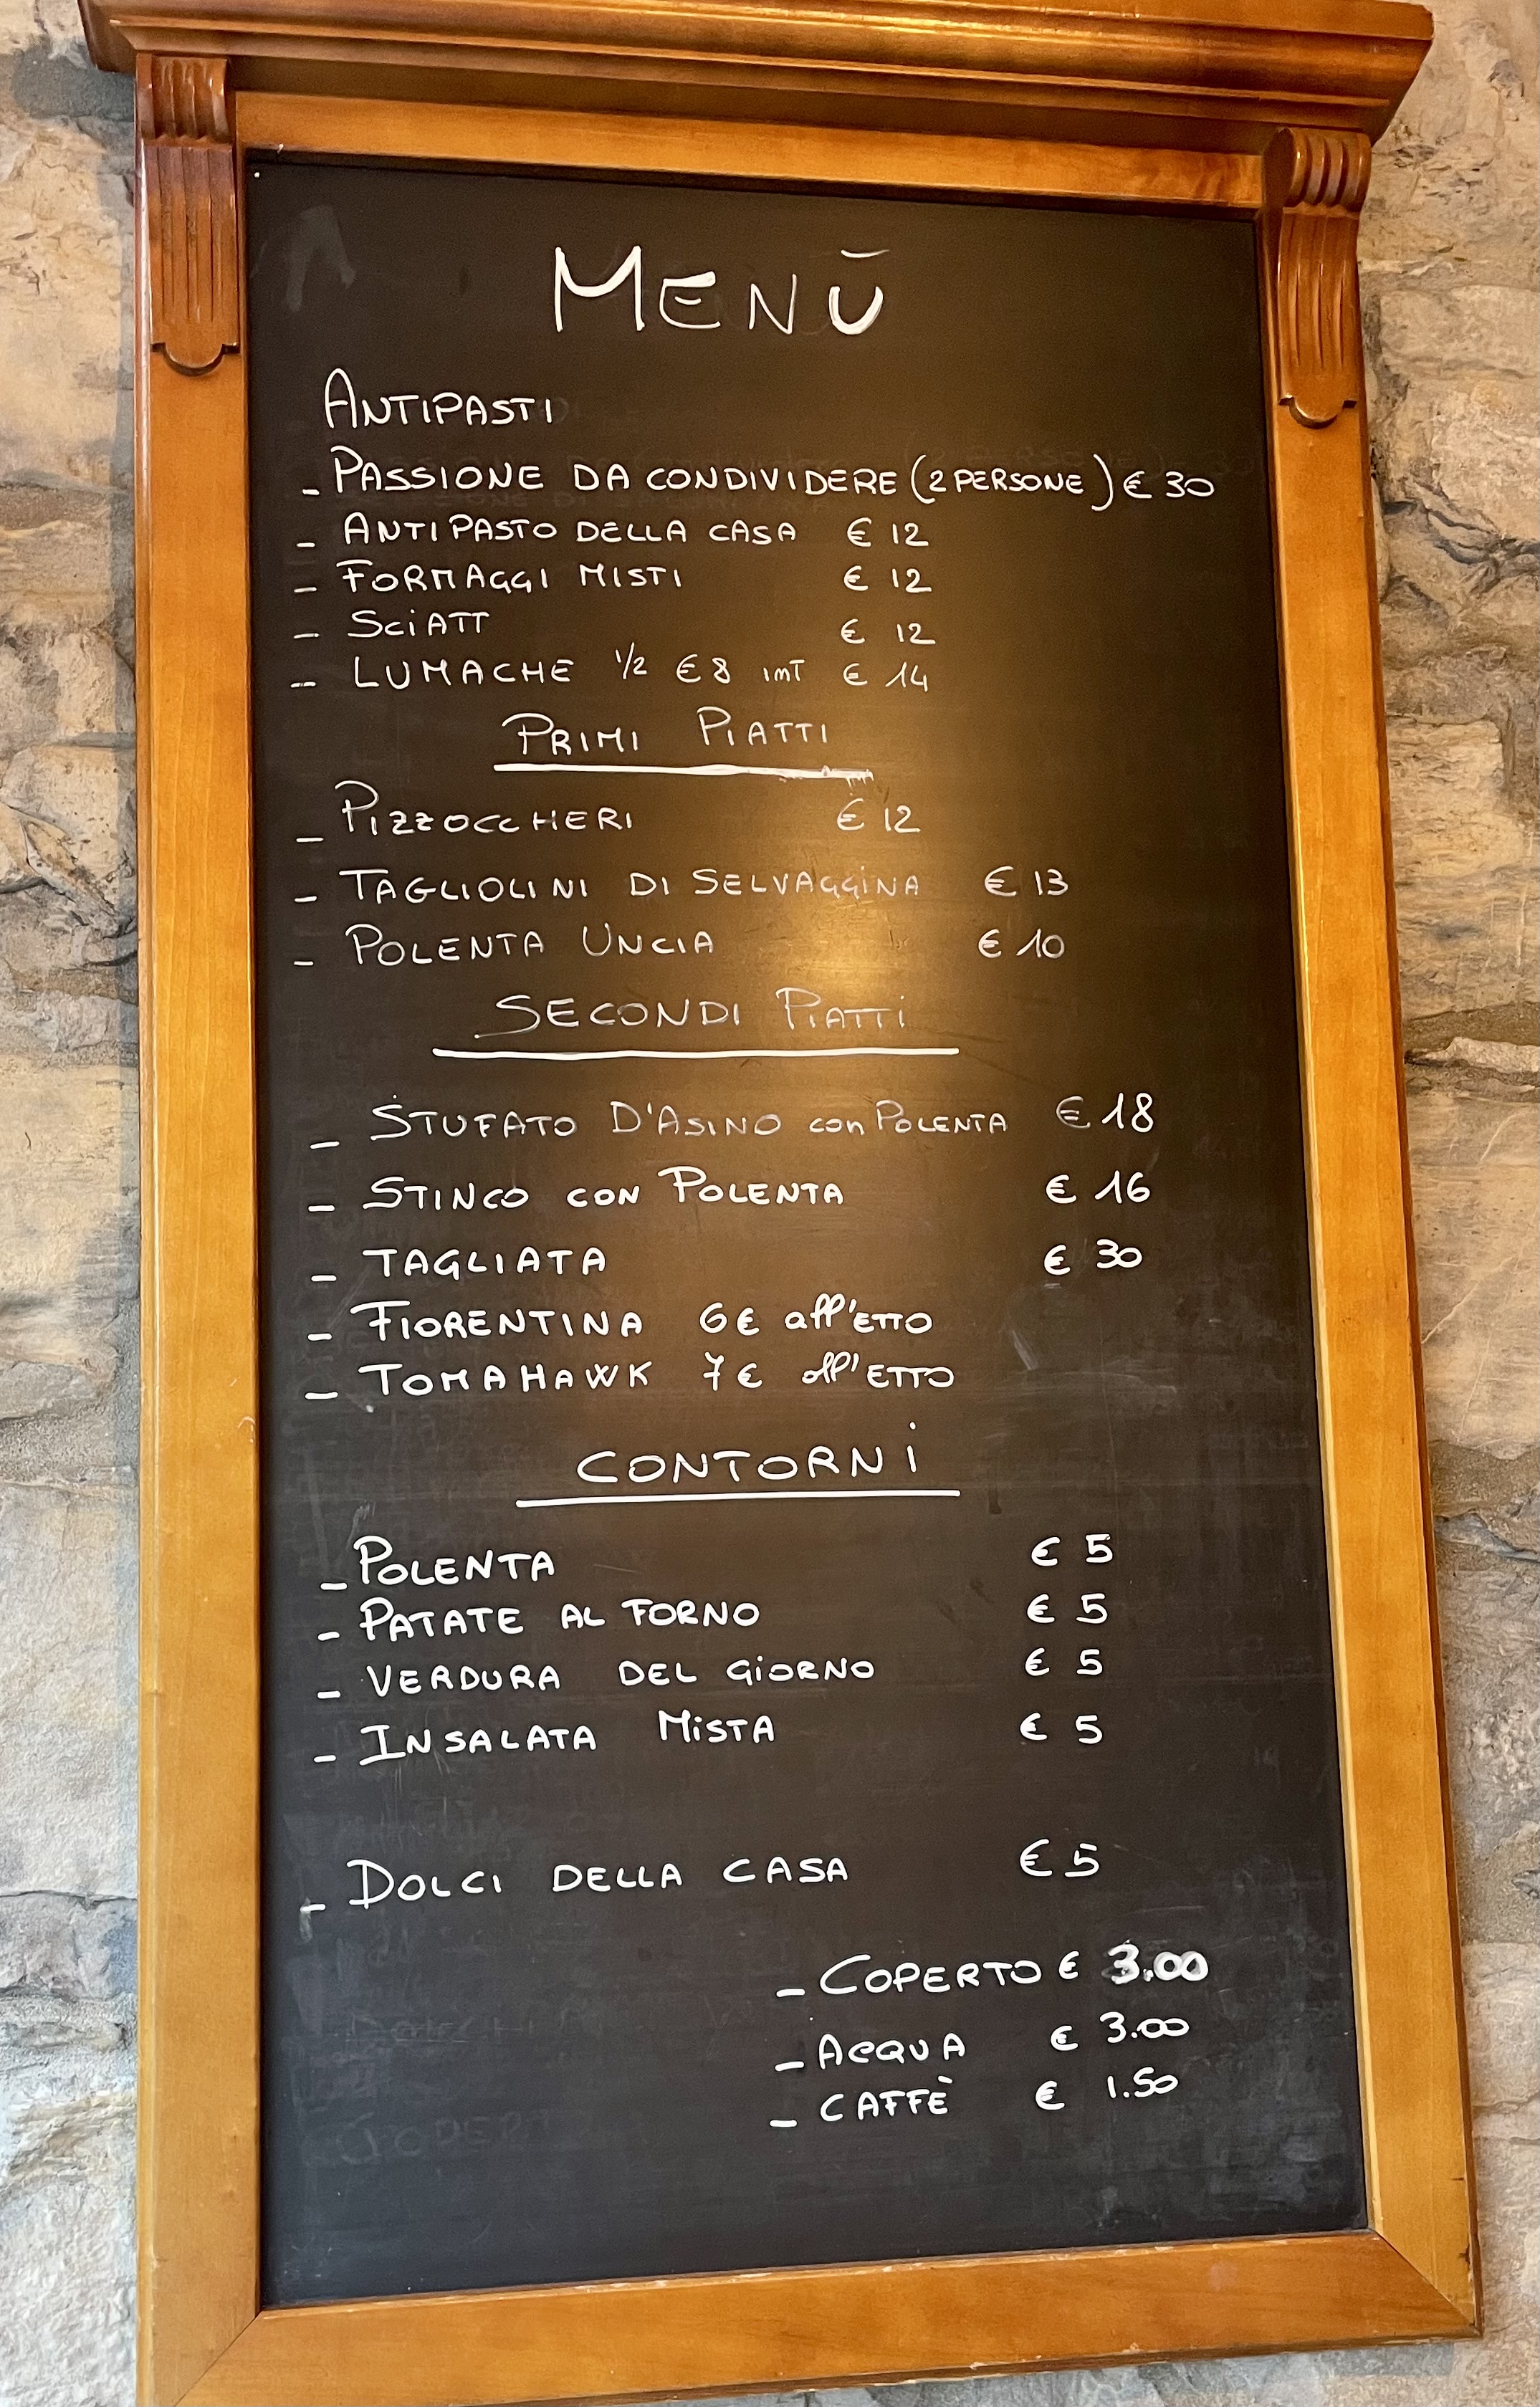 MENŪ
ANTIPASTI
- PASSIONE DA CONDIVIDERE (2 PERSONE) € 30
- ANTIPASTO DELLA CASA € 12
- FORMAGGI MISTI € 12
- SCIATT € 12
- LUMACHE 1/2 € 8 INT € 14
PRIMI PIATTI
- PIZZOCCHERI € 12
- TAGLIOLINI DI SELVAGGINA € 13
- POLENTA UNCIA € 10
SECONDI PIATTI
- STUFATO D'ASINO con POLENTA € 18
- STINCO CON POLENTA € 16
- TAGLIATA € 30
- FIORENTINA 6€ all'ETTO
- TOMAHAWK 7€ all'ETTO
CONTORNI
- POLENTA € 5
- PATATE AL FORNO € 5
- VERDURA DEL GIORNO € 5
- INSALATA MISTA € 5
- DOLCI DELLA CASA € 5
- COPERTO € 3.00
- ACQUA € 3.00
- CAFFÈ € 1.50